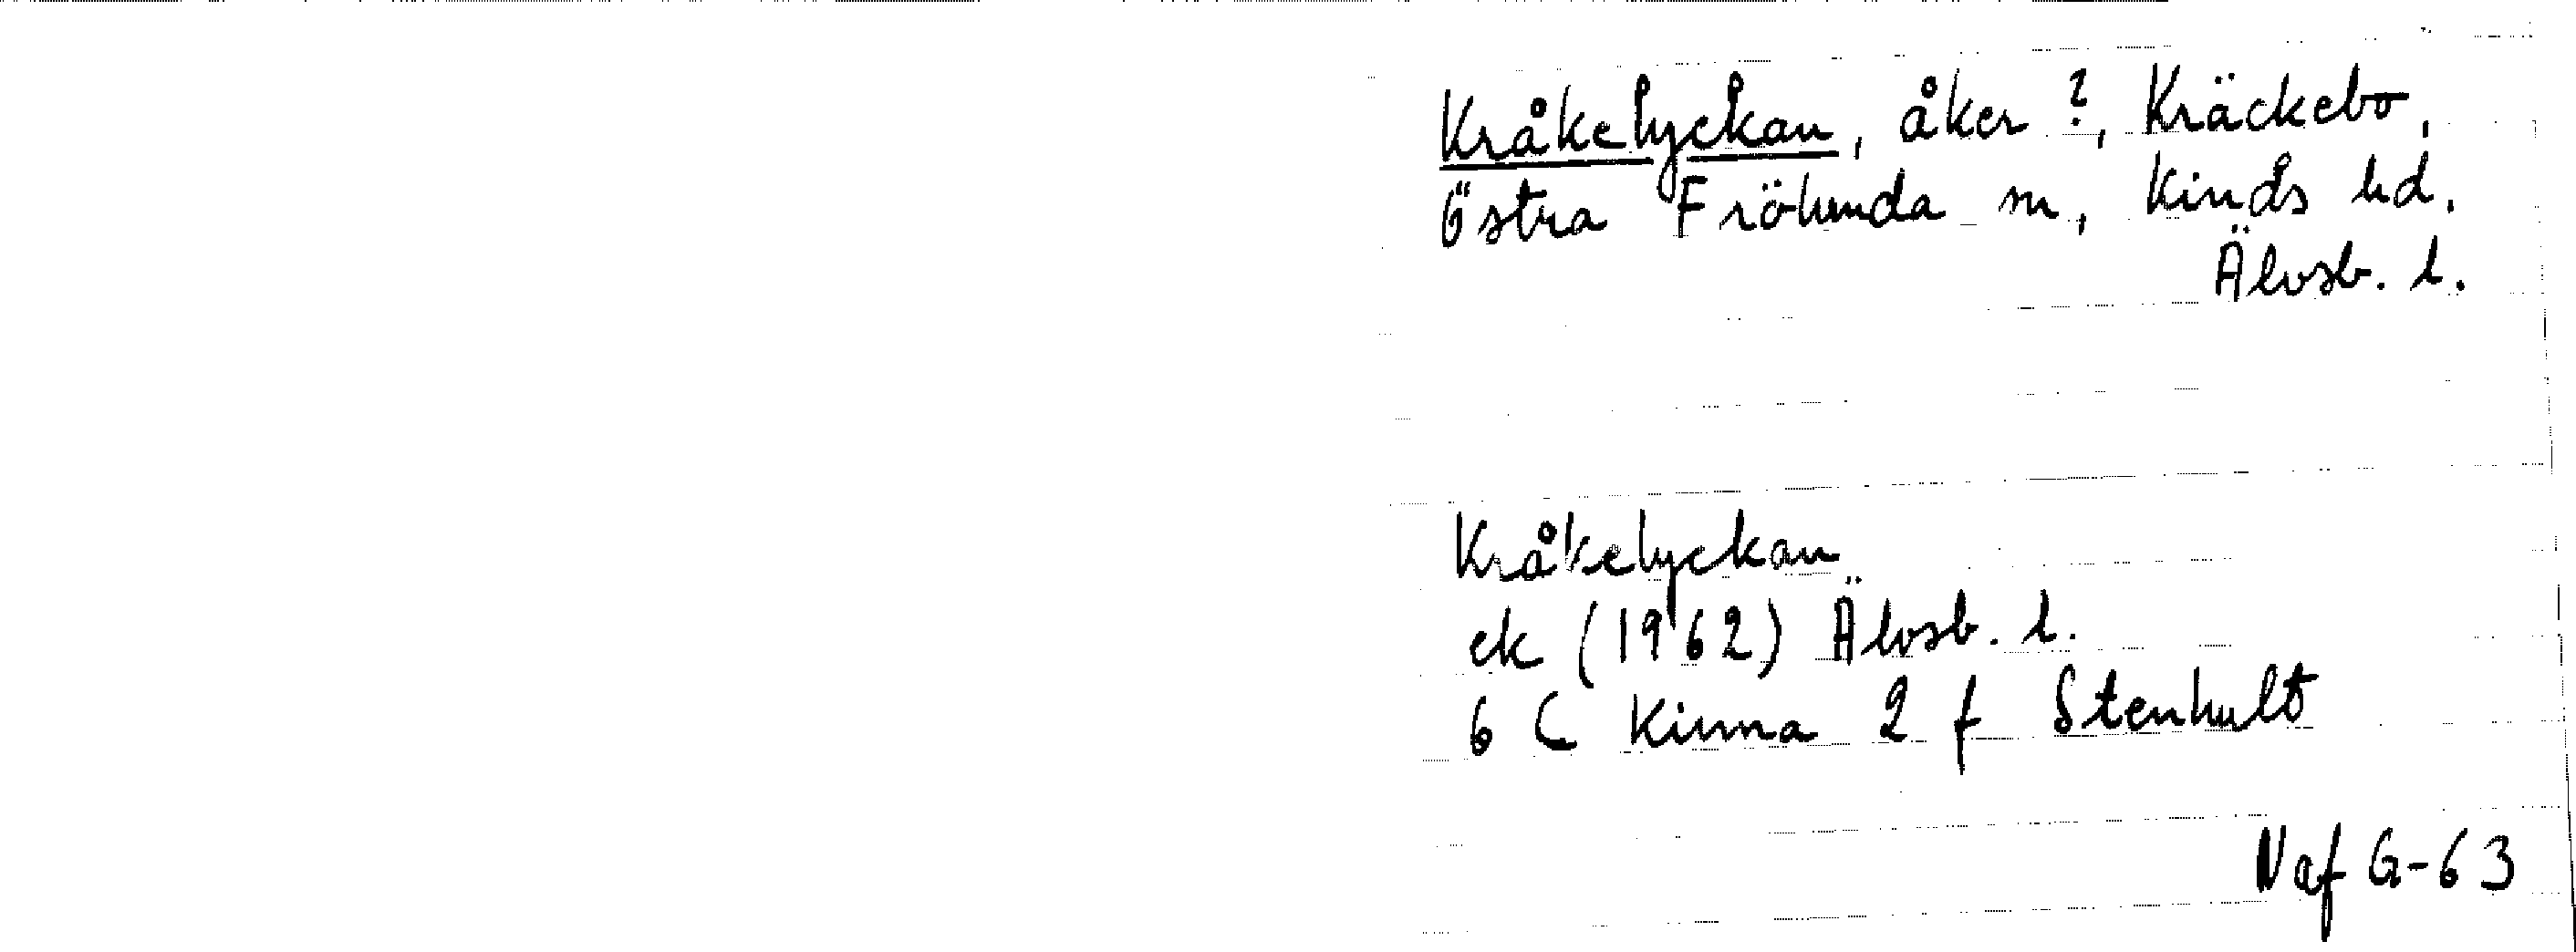 Kråkelyckan, åker ?, Kräckebo,
Östra Frölunda sn, Kinds hd.
Älvsb. l.
Kråkelyckan
ek (1962) Älvsb. l.
6 C Kinna 2 f Stenhult
Naf G-63